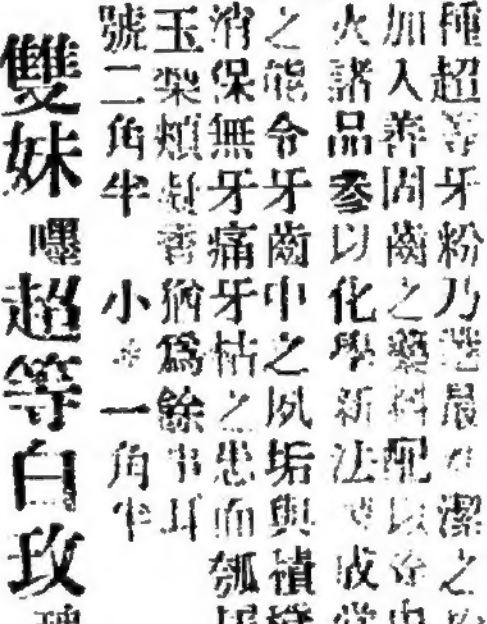 種超等牙粉乃選最潔之粉
加入善固齒之藥料配以
火諸品參以化學新法成
之能令牙齒中之夙垢與積穢
消保無牙痛牙枯之患而瓠
玉梨頰猶為餘事耳
號二角半 小 一角半
雙妹嚜超等白玫